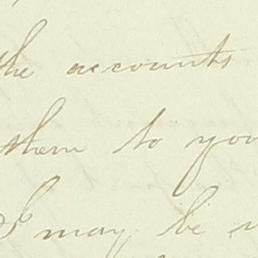 the accounts
them to you
I may be